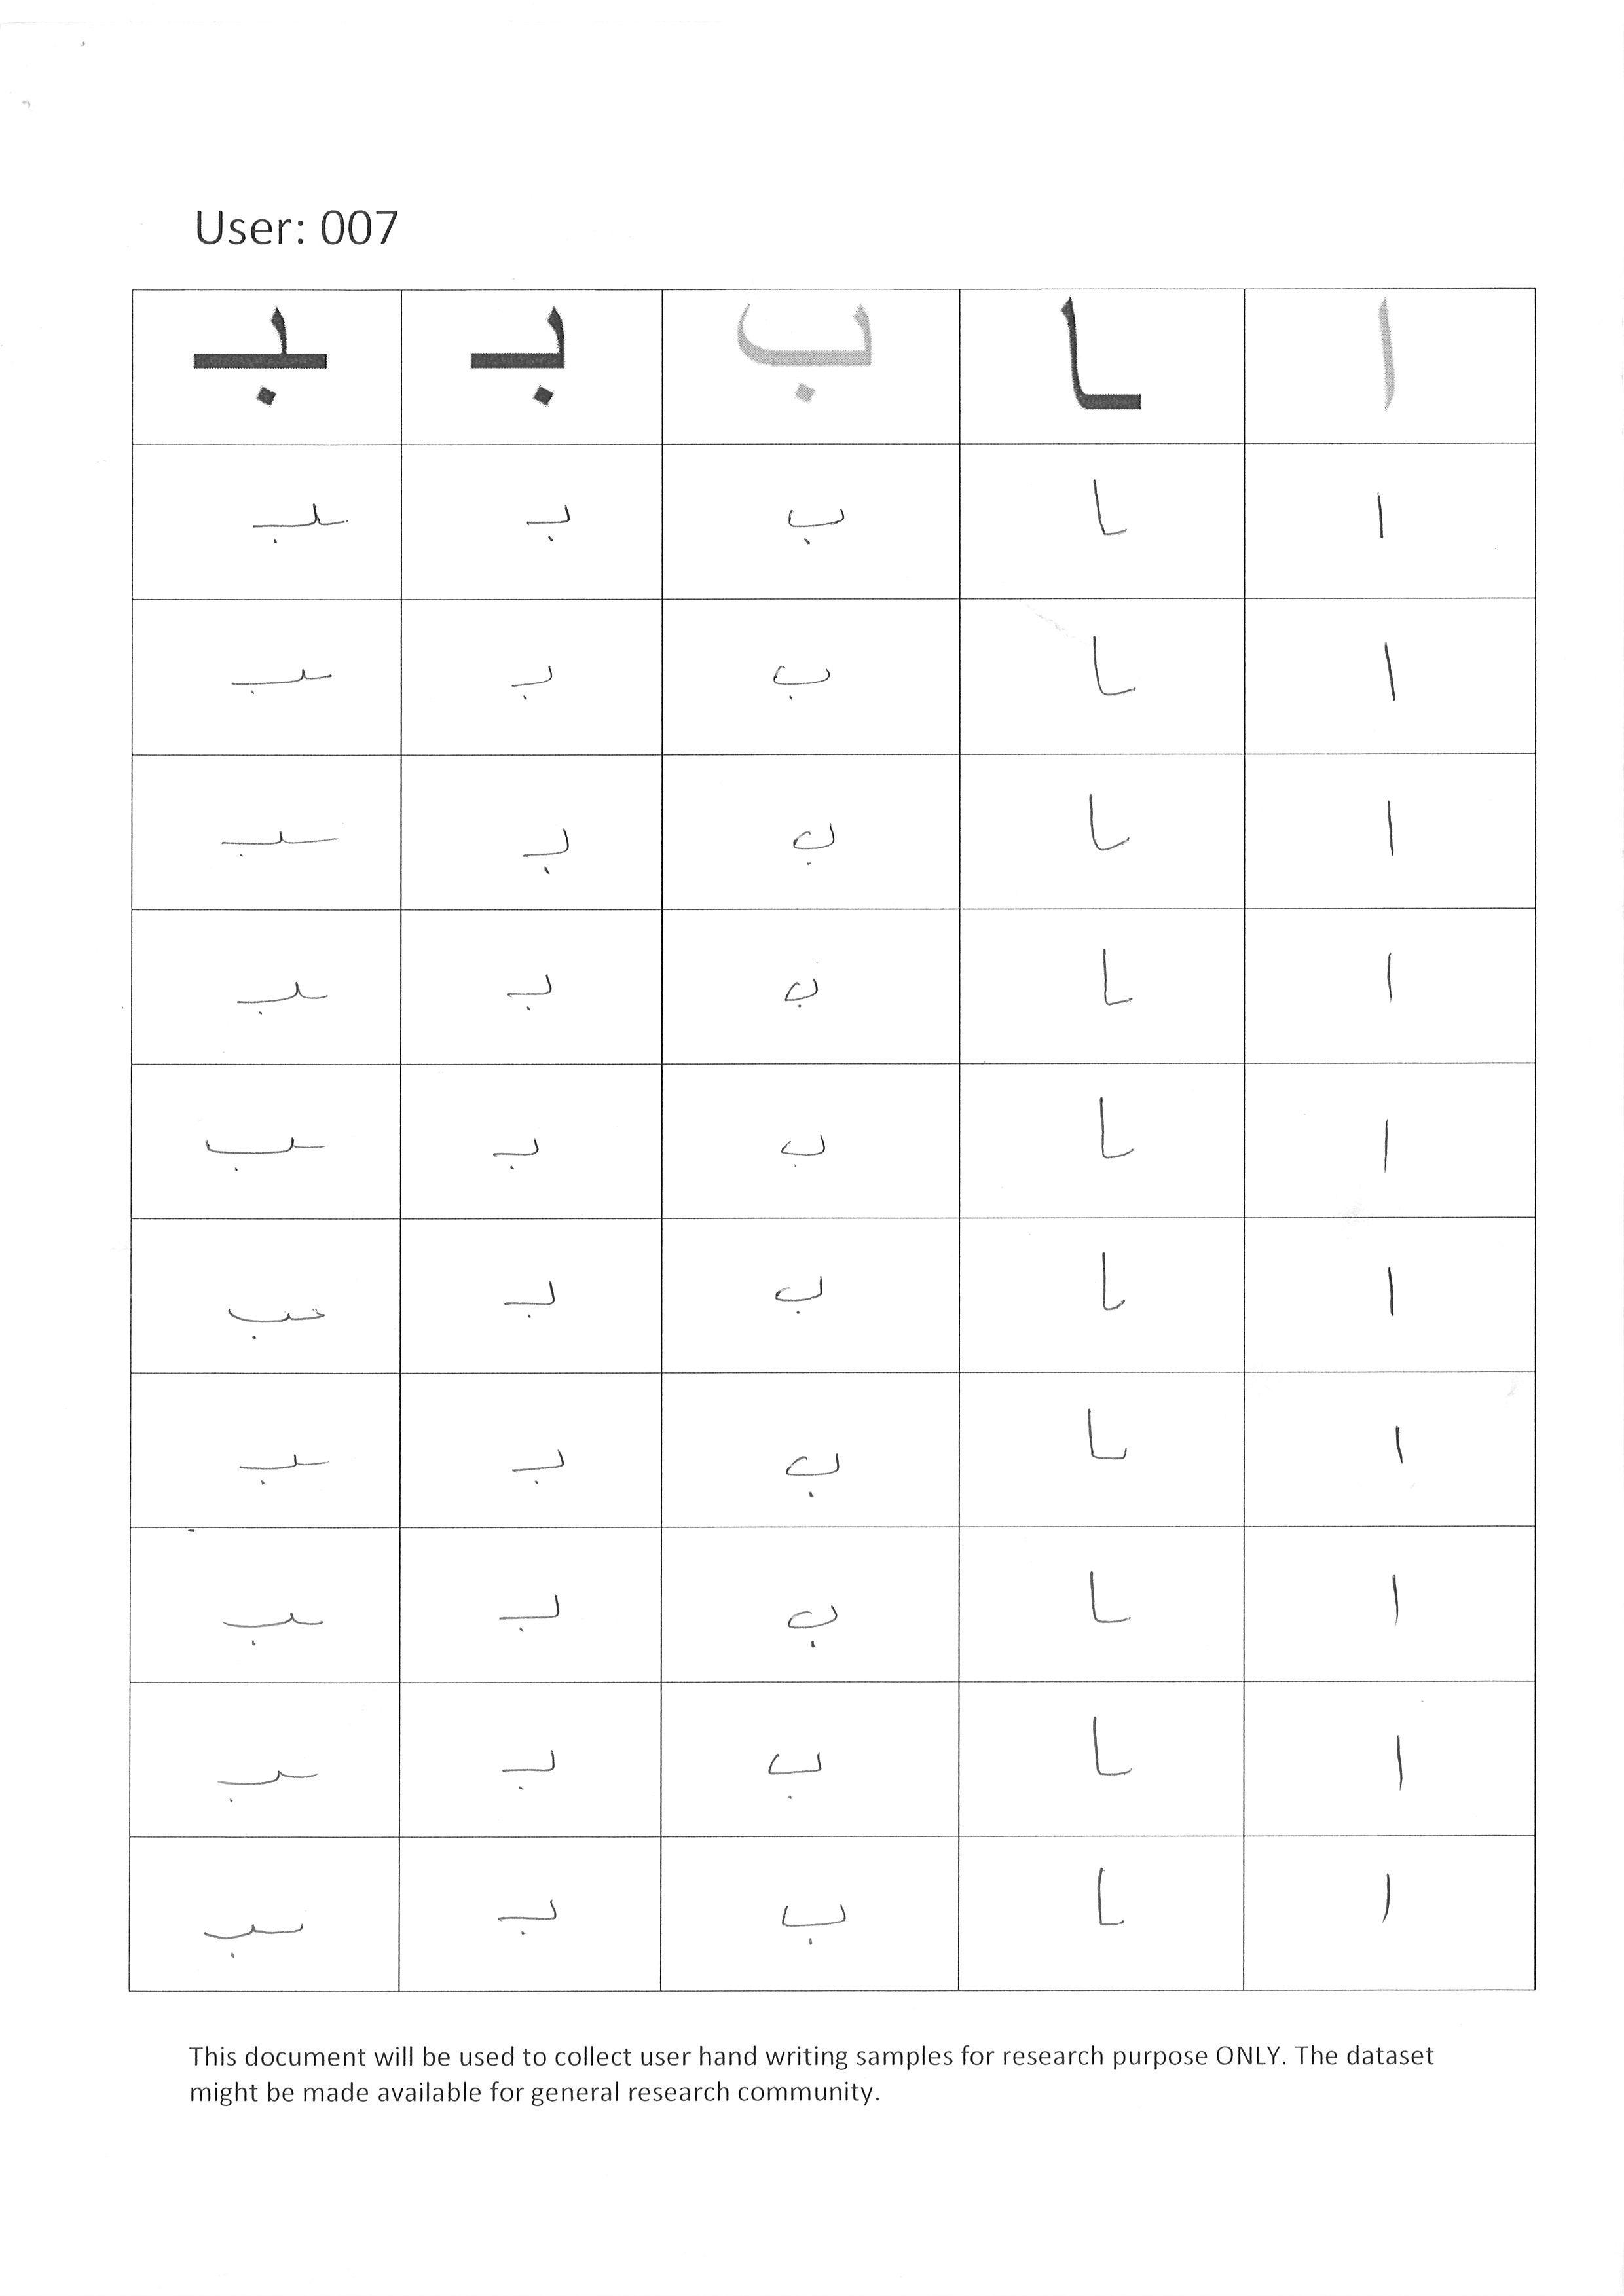 User: 007
ا ـا ب بـ ـبـ
ا ـا ب بـ ـبـ
ا ـا ب بـ ـبـ
ا ـا ب بـ ـبـ
ا ـا ب بـ ـبـ
ا ـا ب بـ ـبـ
ا ـا ب بـ ـبـ
ا ـا ب بـ ـبـ
ا ـا ب بـ ـبـ
ا ـا ب بـ ـبـ
ا ـا ب بـ ـبـ
This document will be used to collect user hand writing samples for research purpose ONLY. The dataset
might be made available for general research community.